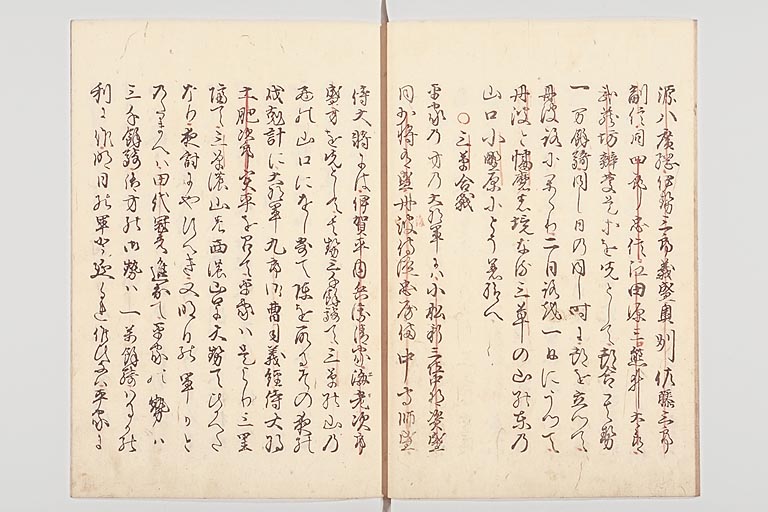 源八廣綱伊勢三郎義盛奥州佐藤三郎
副信同四郎忠信江田源三熊井太郎
武蔵坊弁慶是等を先として都合其勢
一万余騎同し日の同し時に都を立つて
丹波路にかゝり二日路を一日にうつて
丹波と播磨の境なる三草の山の東の
山口小野原にこそ着給へ
○三草合戦
平家の方の大将軍には小松新三位中将資盛
同少将有盛丹後侍従忠房備中守師盛
侍大将には伊賀平内兵衛清家海老次郎
盛方を先として其勢三千余騎て三草の山の
西の山口に
成剋計に大将軍九郎御曹司義経侍大将
土肥次郎実平を召て平家は是より三里
隔て三草の山の西の山口に大勢てひかへた
なり夜討にやすへき又明日の軍かと
の給へは田代冠者進出て平家の勢は
三千余騎御方の御勢は一万余騎はるかの
利に候明日の軍と延られ候ひなは平家に